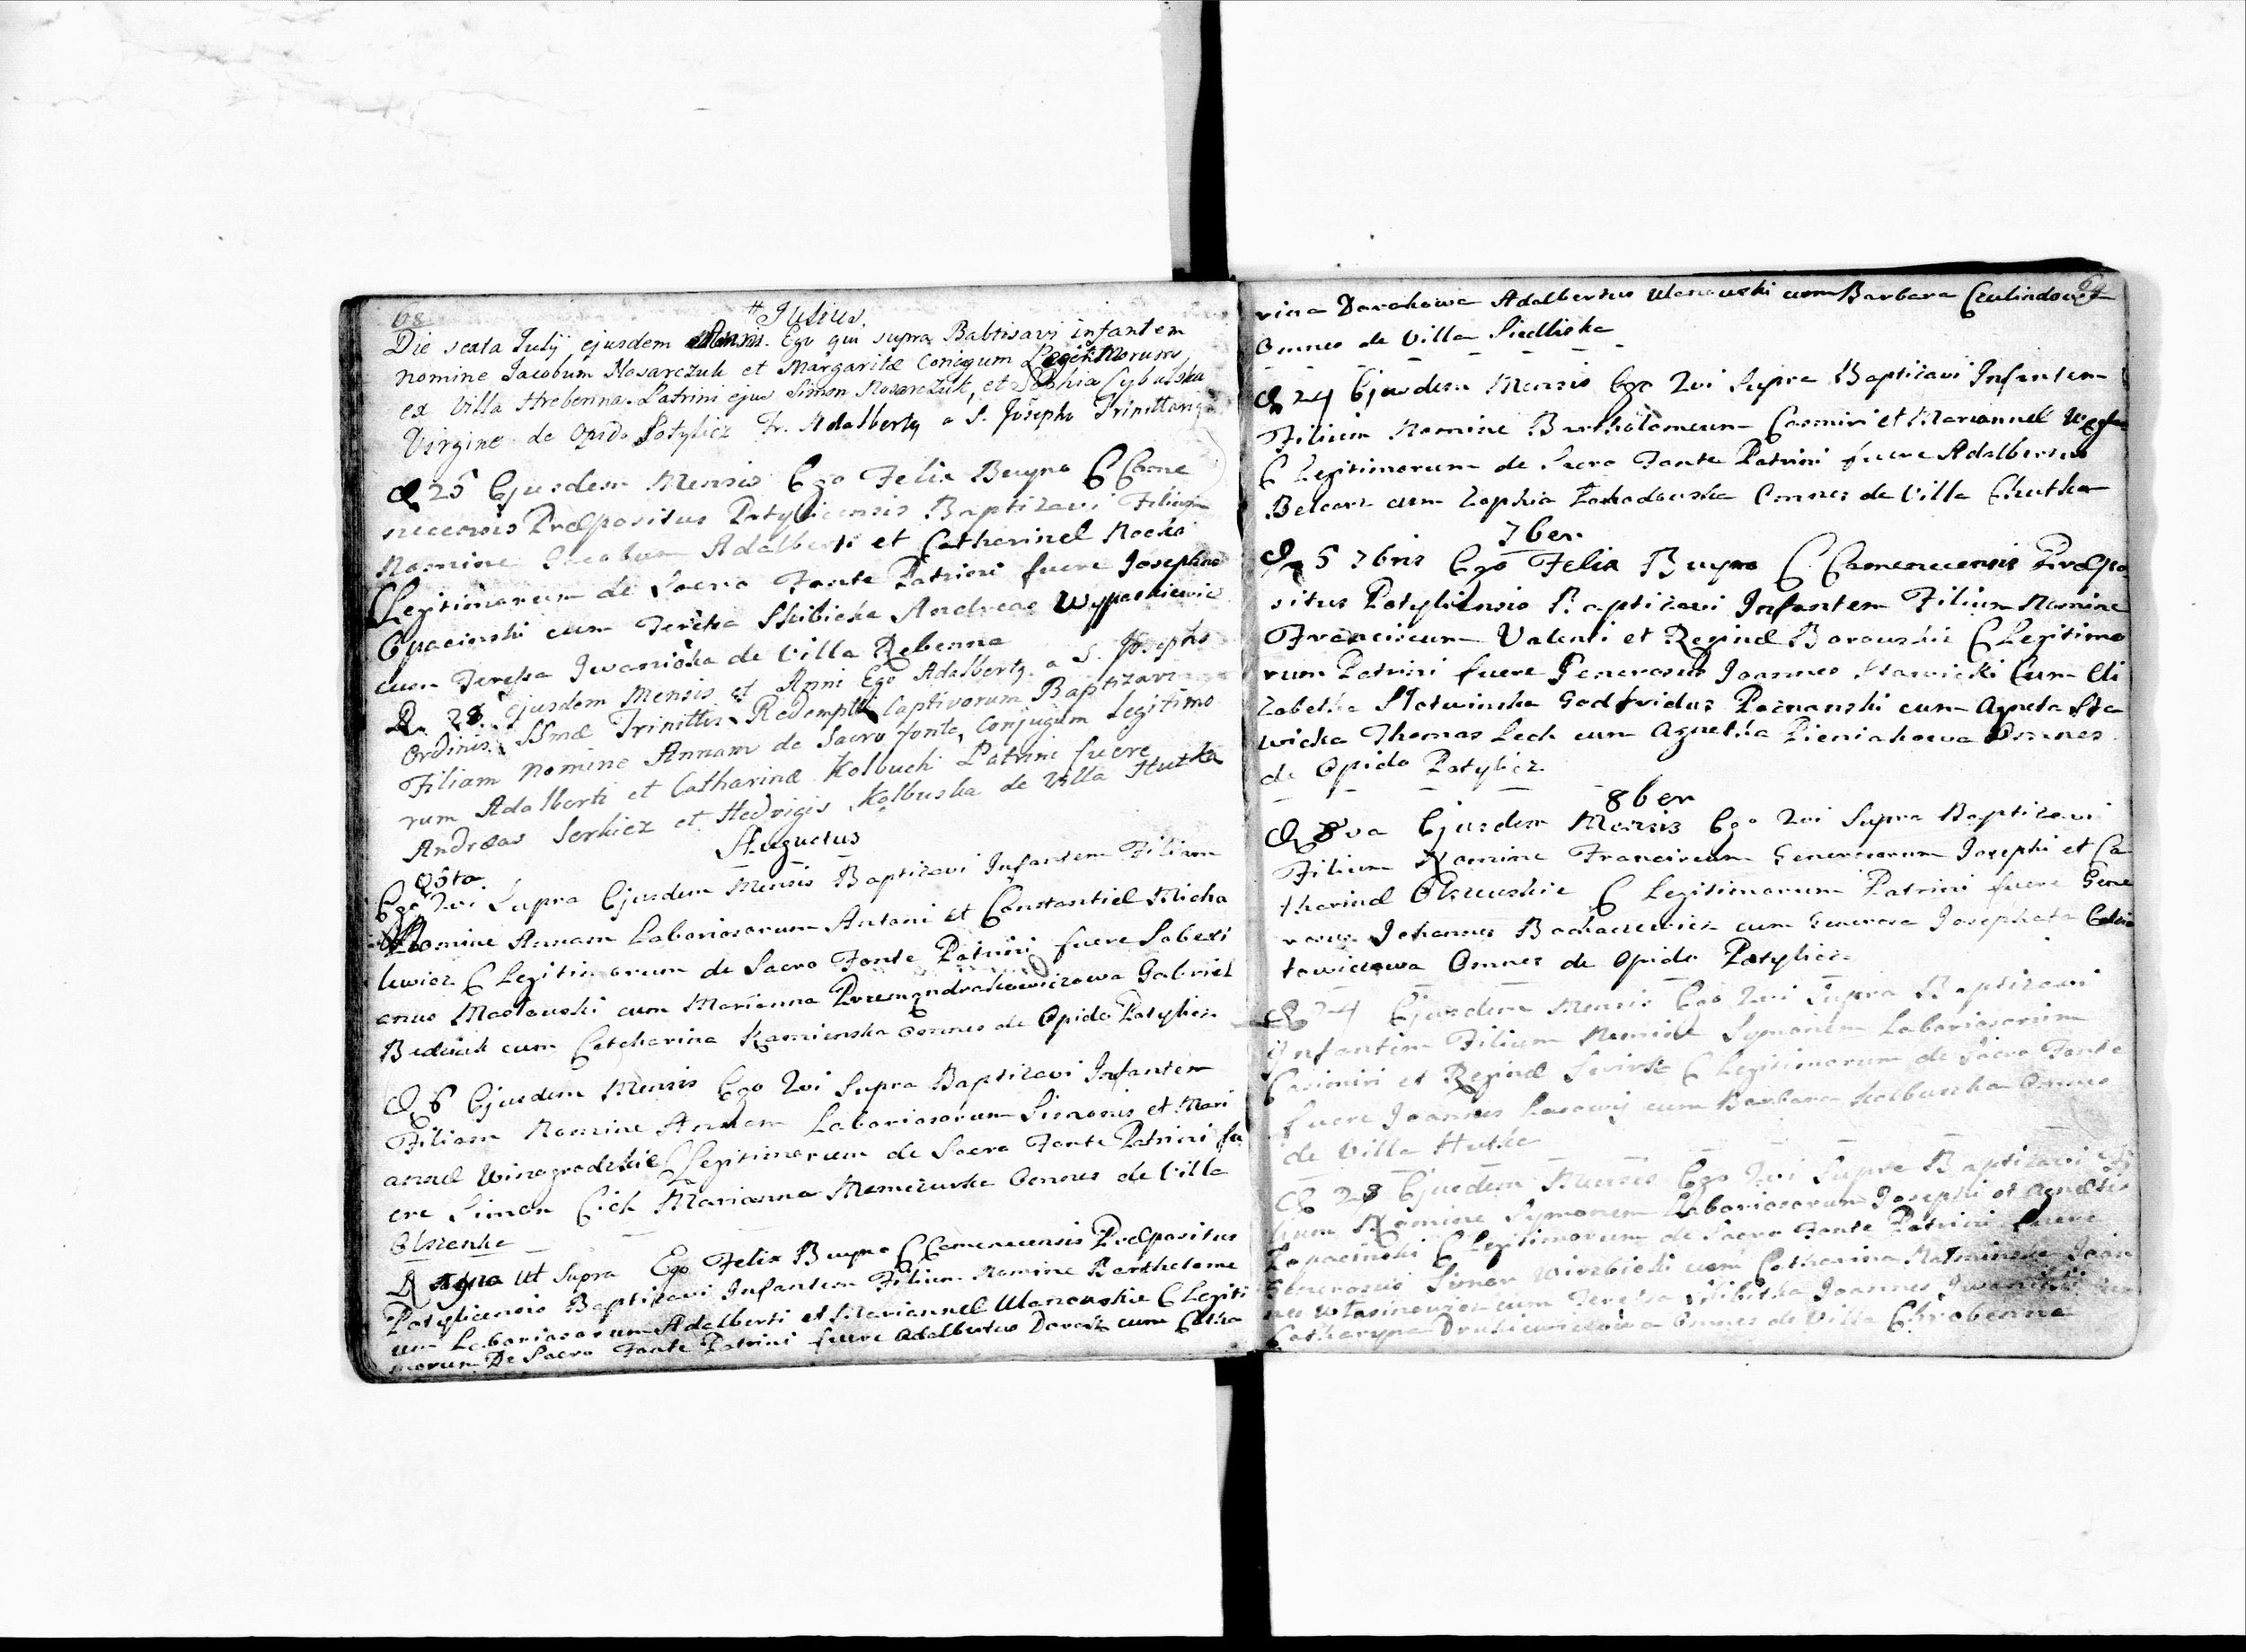 68
Julius.
Die sexta Julij ejusdem Anni. Ego qui supra Babtisavi infantem
nomine Jacobum Nosarczuk et Margaritæ Conjgum Legittimorum
ex Villa Hrebenna. Patrini ejus Simon Nosarczuk, et Sophia Cybulska
Virgine de Opido Potylicz Fr. Adalbertg a S. Josepho
D 25 Ejusdem Mensis Ego Felix Buyno C Came
necensis Præpositus Potyliciensis Baptizavi Filium
Nomine Jacobum Adalberti et Catharinæ Nocko
C Legitimorum de Sacro Fonte Patrini fuere Josephus
Opacinski cum Teresa Skibicka Andreas Wypaskiewic
cum Teressa Iwanicka de Villa Rebenna
D. 28. ejusdem Mensis et Anni Ego Adalbertg. a S. Josepho
Ordinis SSmæ Trinittis Redemptis Captivorum Baptizavi
Filiam nomine Annam de Sacro fonte, Conjugum Legitimo
rum Adalberti et Catharinæ Kolbuch Patrini fuere
Andræas Serkiez et Hedvigis Kolbuska de Villa Hutka
Augustus
D 5ta
Ego Qvi Supra Ejusdem Mensis Baptizavi Infantem Filiam
Nomine Annam Laboriosorum Antoni et Constantiæ Micha
lewicz C Legitimorum de Sacro Fonte Patrini fuere Sabesti
anus Maslowski cum Marianna Gabriel
Bedziuk cum Catcharina Kamienska Omnes de Opido Potylicz
D 6 Ejusdem Mensis Ego Qvi Supra Baptizavi Infantem
Filiam Nomine Annam Laboriosorum Simonis et Mari
annæ Winogrodzkie C Legitimorum de Sacro Fonte Patrini fu
ere Simon Cich Marianna Memczurka Omnes de Villa
Olszanka
D Ut Supra Ego Felix Buyno C Camenecensis Præpositus
Potyliciensis Baptizavi Infantem Filium Nomine Bartholome
um Laboriosorum Adalberti et Mariannæ Ulanowskie C Legiti
morum De Sacro Fonte Patrini fuere Adalbertus Daraz cum Catha
69
rina Darahowa Adalbertus Ulanowski cum Barbara
Omnes de Villa Siedliska
D 24 Ejusdem Mensis Ego Qvi Supra Baptizavi Infantem
Filium Nomine Bartholomeum Casmiri et Mariannæ
C Legitimorum de Sacro Fonte Patrini fuere Adalbertus
Belcarz cum Zophia Zawadowska Omnes de Villa Chutka
7ber
D 5 7bris Ego Felix Buyno C. Camenecensis Præpo
situs Potyliensis Baptizavi Infantem Filium Nomine
Franciscum Valenti et Reginæ Borowskie C Legitimo
rum Patrini fuere Generosus Joannes Stawicki Cum Eli
zabetha Slotwinska Godfridus Poznanski cum Agneta Sta
wicka Thomas Lech cum Agnetka Pieniakowa Omnes
de Opido Potylicz
8ber
D 8va Ejusdem Mensis Ego Qvi Supra Baptizavi
Filium Nomine Franciscum Generosorum Josephi et Ca
tharinæ Olszewskie C Legitimorum Patrini fuere Gene
rosus Johannes Bochacewicz cum Generosa Josephata
towiczowa Omnes de Opido Potylicz
D 24 Ejusdem Mensis Ego Qvi Supra Baptizavi
Infantem Filium Nomine Symonem Laboriosorum
Casimiri et Reginæ C Legitimorum de Sacro Fonte
fuere Joannes cum Barbara Kolbuszka Omnes
de Villa Hutka
D 28 Ejusdem Mensis Ego Qvi Supra Baptizavi Fi
lium Nomine Symonem Laboriosorum Josephi et Agnetis
Lopacinski C Legitimorum de Sacro Fonte Patrini fuere
Generosus Simon Wirzbicki cum Catharina Joan
nes Wlasinowicz cum Teressa Skibitka Joannes Iwanitki cum
Catharyna Omnes de Villa Chrobenna